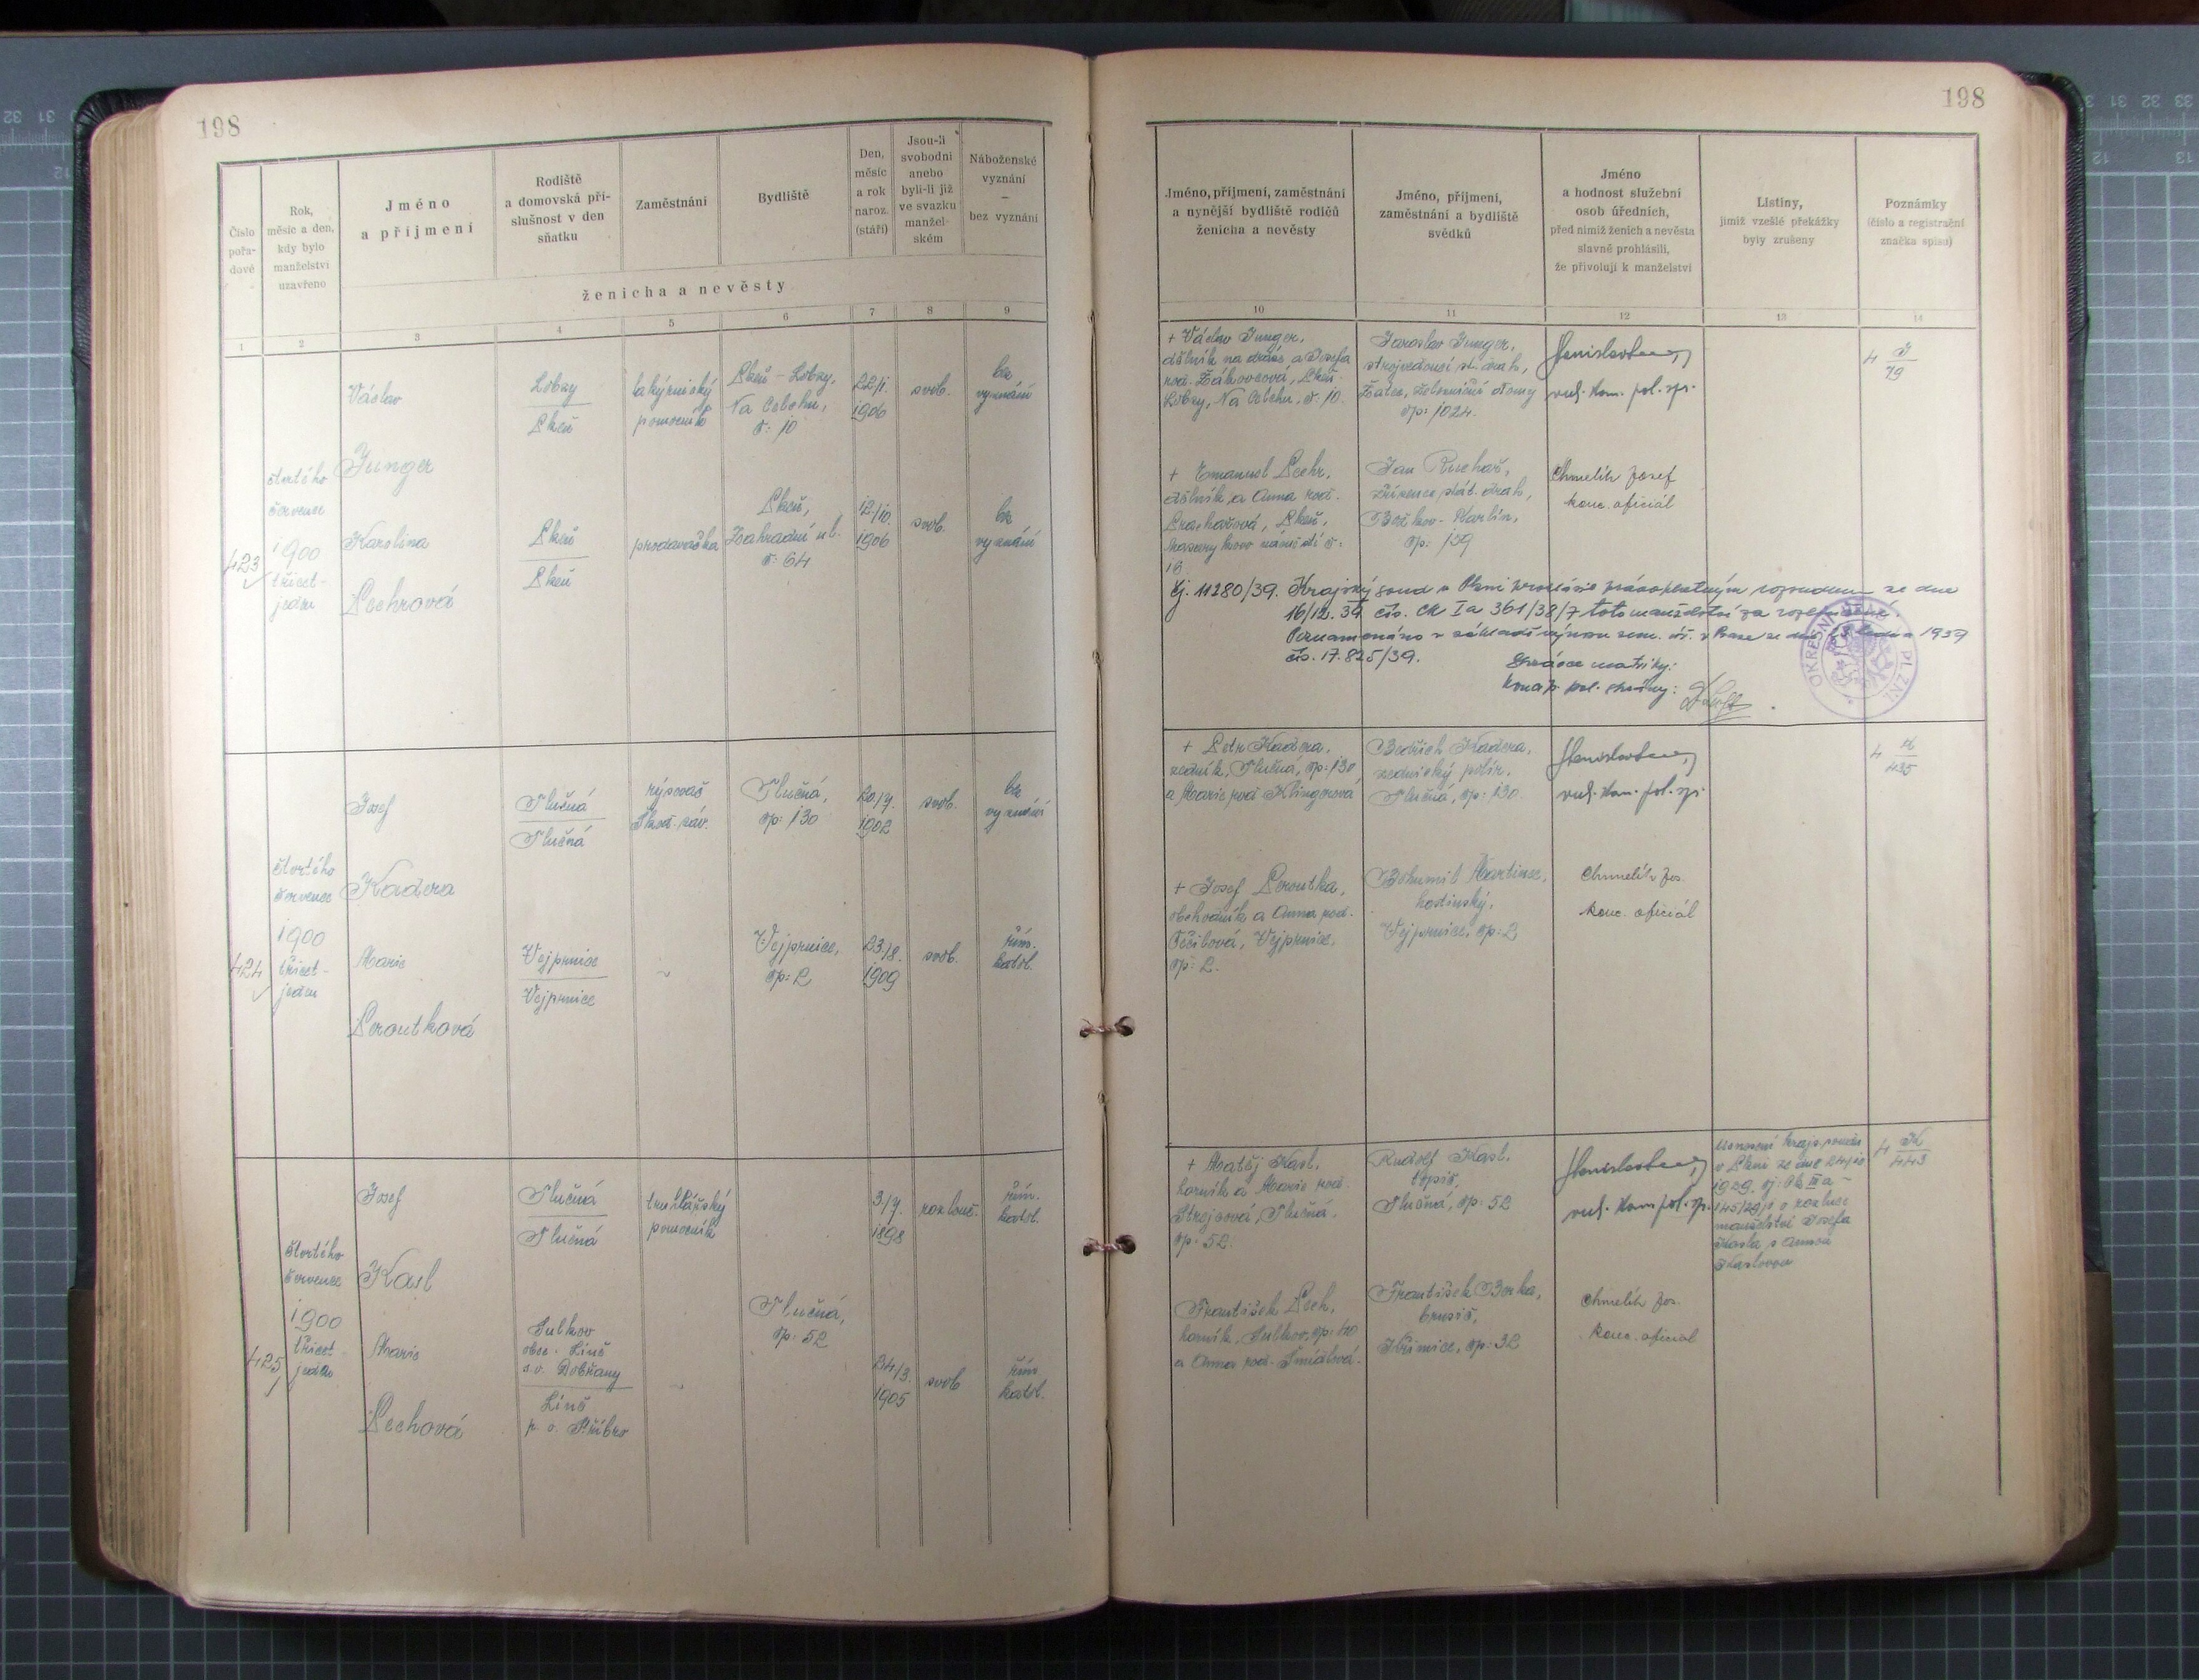 198
198
Číslo pořadové
Rok, měsíc a den, kdy bylo manželství uzavřeno
Jméno a příjmení
Rodiště a domovská příslušnost v den sňatku
Zaměstnání
Bydliště
Den, měsíc a rok naroz. (stáří)
Jsou-li svobodni anebo byli-li již ve svazku manželském
Náboženské vyznání – bez vyznání
ženicha a nevěsty
Jméno, příjmení, zaměstnání a nynější bydliště rodičů ženicha a nevěsty
Jméno, příjmení, zaměstnání a bydliště svědků
Jméno a hodnost služební osob úředních, před nimiž ženich a nevěsta slavně prohlásili, že přivolují k manželství
Listiny, jimiž vzešlé překážky byly zrušeny
Poznámky (číslo a registrační značka spisu)
1 2 3 4 5 6 7 8 9 10 11 12 13 14
423
čtvrtého
července
1900
třicet-
jeden
Václav
Junger
Lobzy
Plzeň
lakýrnický
pomocník
Plzeň - Lobzy,
Na Celchu,
č: 10
22/1.
1906
svob.
bez
vyznání
Karolina
Pechrová
Plzeň
Plzeň
prodavačka
Plzeň,
Zahradní ul.
č: 64
12/10.
1906
svob.
bez
vyznání
+ Václav Junger,
dělník na dráze a Josefa
roz. Žákovcová, Plzeň-
Lobzy, Na Celchu, č: 10.
Jaroslav Junger,
strojvedoucí st. drah,
Žatec, Železniční domy
čp: 1024.
vrch. kom. pol. spr.
4 J/79
+ Emanuel Pechr,
dělník a Anna roz.
Prachařová, Plzeň,
Masarykovo náměstí č:
18.
Jan Ruchař,
zřízenec stát. drah,
Božkov - Karlín,
čp: 159
Chmelík Josef
kanc. oficiál
Čj. 11280/39. Krajský soud v Plzni prohlásil právoplatným rozsudkem ze dne
16/12. 38 čís. Ck Ia 361/38/7 toto manželství za rozloučené.
Poznamenáno v základě výnosu zem. úř. v Praze ze dne ledna 1939
čís. 17.825/39.
Správce matriky:
OKRESNÍ PLZNI
424
čtvrtého
července
1900
třicet-
jeden
Josef
Kadera
Tlučná
Tlučná
rýsovač
Škod. záv.
Tlučná,
čp: 130
20/7.
1902
svob.
bez
vyznání
Marie
Peroutková
Vejprnice
Vejprnice
Vejprnice,
čp: 2
23/8.
1909
svob.
řím.
katol.
+ Petr Kadera,
zedník, Tlučná, čp: 130
a Marie roz. Klingrová
Bedřich Kadera,
zednický polír,
Tlučná, čp: 130.
vrch. kom. pol. spr.
4 K/435
+ Josef Peroutka,
obchodník a Anna roz.
Vejprnice,
čp: 2.
Bohumil Martinec,
hostinský,
Vejprnice, čp: 2
Chmelík Jos.
kanc. oficiál
425
čtvrtého
července
1900
třicet
jeden
Josef
Kasl
Tlučná
Tlučná
truhlářský
pomocník
3/7.
1898
rozlouč.
řím.
katol.
Tlučná,
čp: 52
Marie
Pechová
Sulkov
obec: Líně
s.o. Dobřany
Líně
p. o. Stříbro
24/3.
1905
svob
řím
katol.
+ Matěj Kasl,
horník a Marie roz.
Strejcová, Tlučná,
čp: 52.
Rudolf Kasl,
topič,
Tlučná, čp: 52
vrch. kom. pol. spr.
Usnesení krajs. soudu
v Plzni ze dne 24/10
1929, čj: Ck IIa -
145/29 o rozluce
manželství Josefa
Kasla s Annou
Kaslovou
4 K/443
František Pech,
horník, Sulkov, čp: 40
a Anna roz. Šmídlová.
František Borka,
brusič,
Křimice, čp: 32
Chmelík Jos.
kanc. oficial